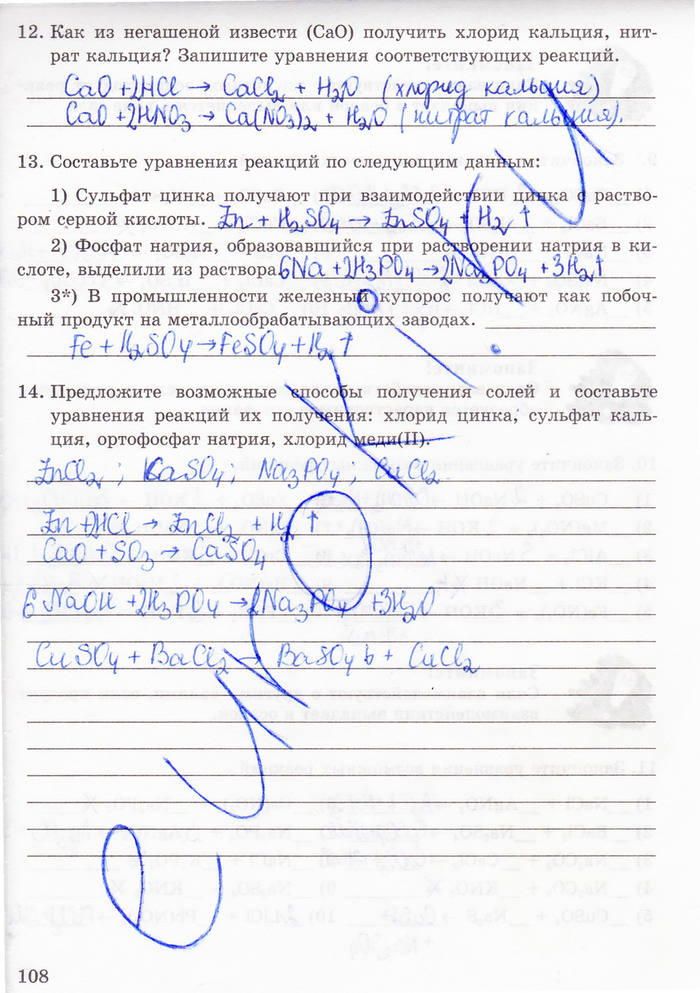 12. Как из негашеной извести (CaO) получить хлорид кальция, нит-
рат кальция? Запишите уравнения соответствующих реакций.
CaO + 2HCl → CaCl₂ + H₂O (хлорид кальция)
CaO + 2HNO₃ → Ca(NO₃)₂ + H₂O (нитрат кальция).
13. Составьте уравнения реакций по следующим данным:
1) Сульфат цинка получают при взаимодействии цинка с раство-
ром серной кислоты. Zn + H₂SO₄ → ZnSO₄ + H₂↑
2) Фосфат натрия, образовавшийся при растворении натрия в ки-
слоте, выделили из раствора. 6Na + 2H₃PO₄ → 2Na₃PO₄ + 3H₂↑
3*) В промышленности железный купорос получают как побоч-
ный продукт на металлообрабатывающих заводах.
Fe + H₂SO₄ → FeSO₄ + H₂↑
14. Предложите возможные способы получения солей и составьте
уравнения реакций их получения: хлорид цинка, сульфат каль-
ция, ортофосфат натрия, хлорид меди(II).
ZnCl₂; CaSO₄; Na₃PO₄, CuCl₂.
Zn + 2HCl → ZnCl₂ + H₂↑
CaO + SO₃ → CaSO₄
6NaOH + 2H₃PO₄ → 2Na₃PO₄ + 3H₂O
CuSO₄ + BaCl₂ → BaSO₄↓ + CuCl₂
108